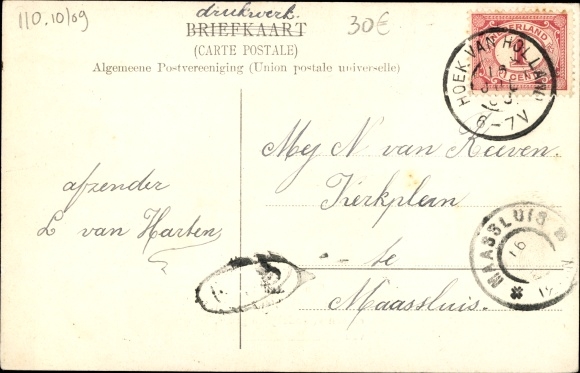 110.10/09
drukwerk.
30€
BRIEFKAART
(CARTE POSTALE)
Algemeene Postvereeniging (Union postale universelle)
NEDERLAND
1
CENT
HOEK VAN HOLLAND
16
6-7V
Mej N. van Reeven.
Kerkplein
te
Maassluis.
afzender
L van Harten
MAASSLUIS
16